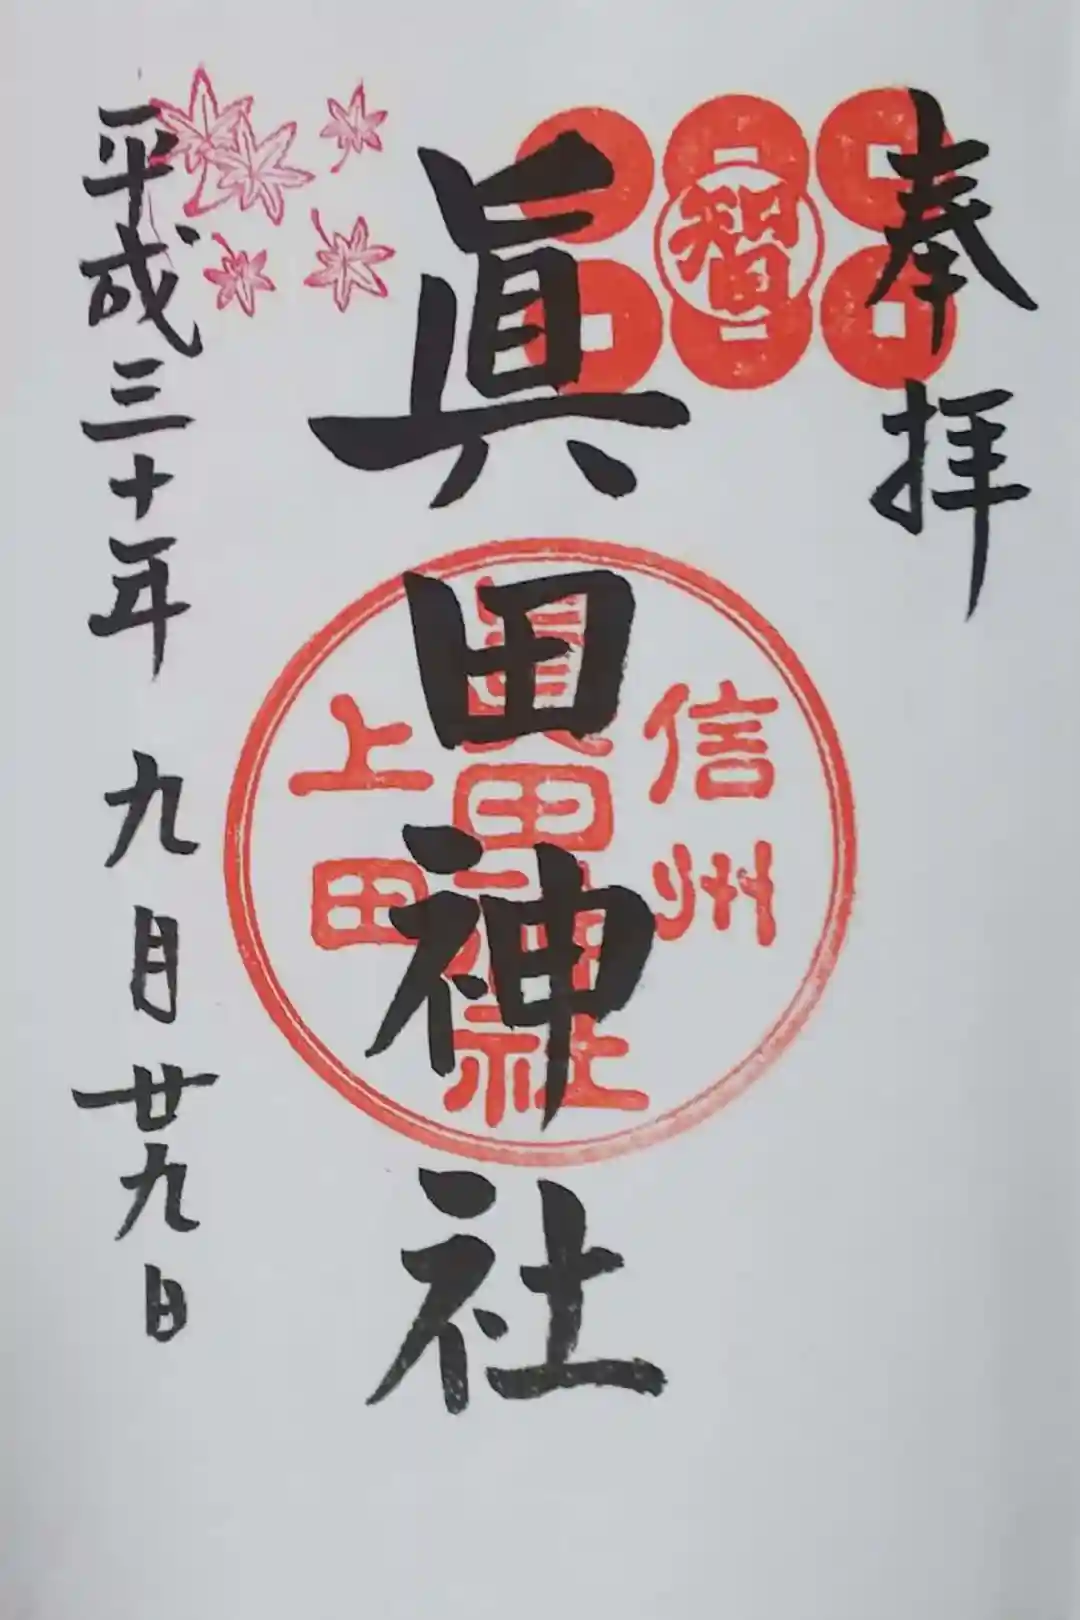 奉拝
智
眞田神社
信州
眞田神社
上田
平成三十年 九月廿九日